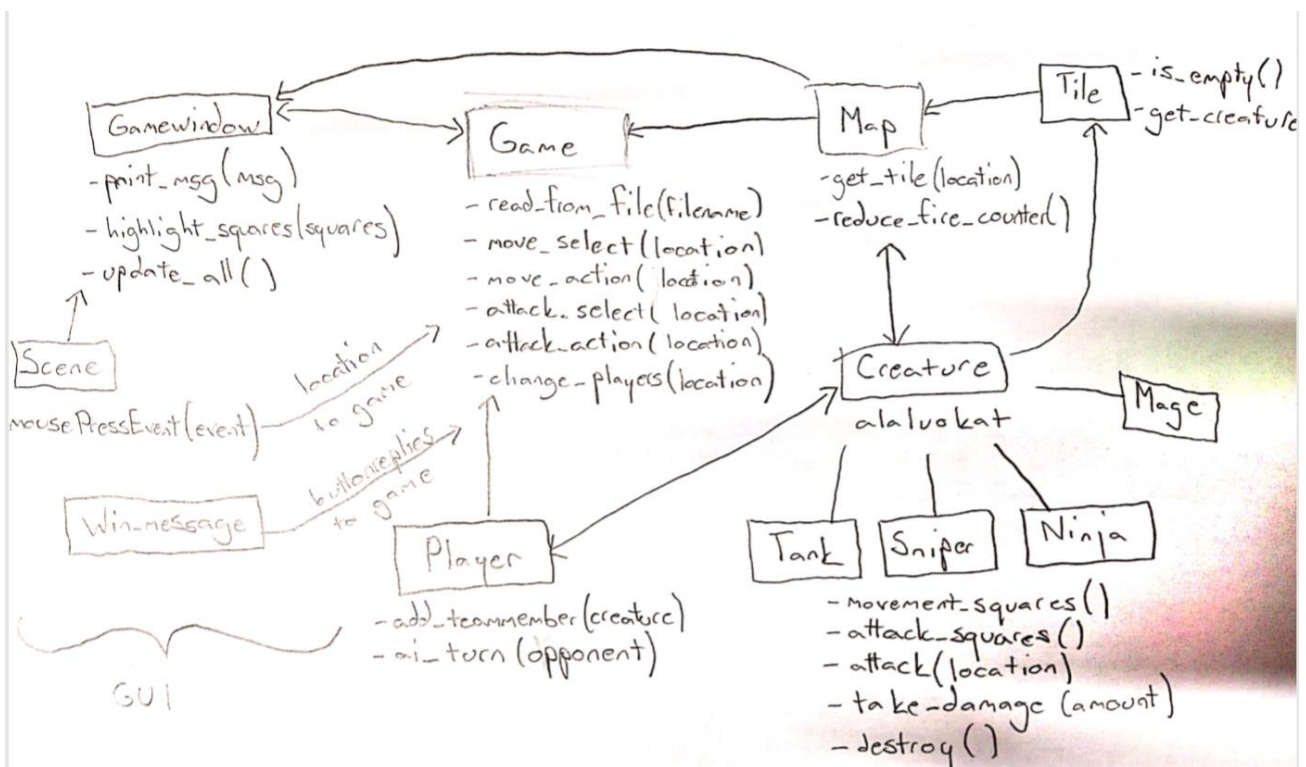 Gamewindow
-print_msg(msg)
-highlight_squares(squares)
-update_all()
Scene
mousePressEvent(event)
location
to game
Win-message
buttonreplies
to game
GUI
Game
-read_from_file(filename)
-move_select(location)
-move_action(location)
-attack_select(location)
-attack_action(location)
-change_players(location)
Player
-add_teammember(creature)
-ai_turn(opponent)
Map
-get_tile(location)
-reduce_fire_counter()
Tile
-is_empty()
-get_creature
Creature
alaluokat
Mage
Tank
Sniper
Ninja
-movement_squares()
-attack_squares()
-attack(location)
-take_damage(amount)
-destroy()